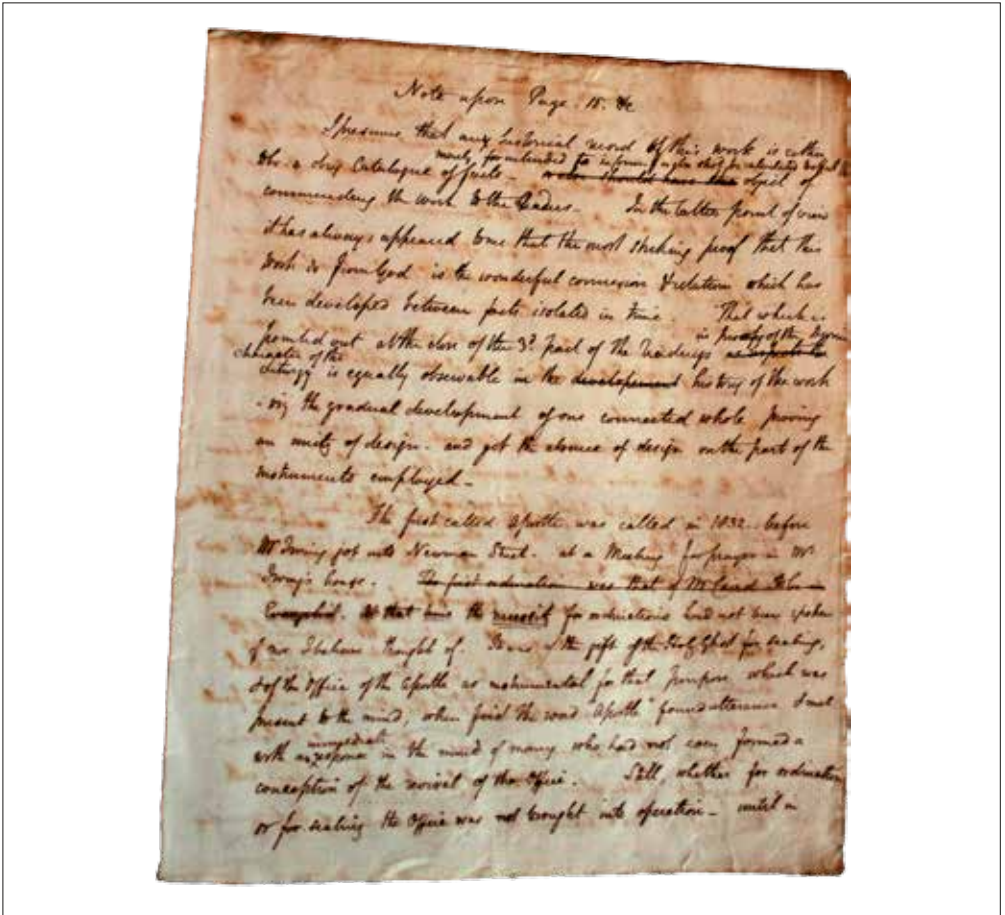 Note upon Page 15. &c
I presume that any historical record of this work is either
merely for intended to inform
a dry Catalogue of facts – object of
commending the work to the Readers. In the latter point of view
it has always appeared to me that the most striking proof that this
Work is from God is the wonderful connexion & relation which has
been developed between facts isolated in time. That which is
in of the Divine
pointed out at the close of the 3d. part of the Readings
character of the
Liturgy is equally observable in the developement history of the work
- viz the gradual development of one connected whole proving
an unity of design – and yet the absence of design on the part of the
instruments employed –
The first called Apostle was called in 1832. before
Mr Irving got into Newman Street. at a Meeting for prayer in Mr
Irving's house. The first ordination was that of Mr Caird to be
Evangelist. At that time the necessity for ordinations had not been spoken
of nor I believe thought of. It was the gift of the Holy Ghost for sealing,
& of the Office of the Apostle as instrumental for that purpose which was
present to the mind, when first the word "Apostle" found utterance & met
immediate
with a response in the mind of many who had not even formed a
conception of the revival of the Office. Still, whether for ordination
or for sealing the Office was not brought into operation – until